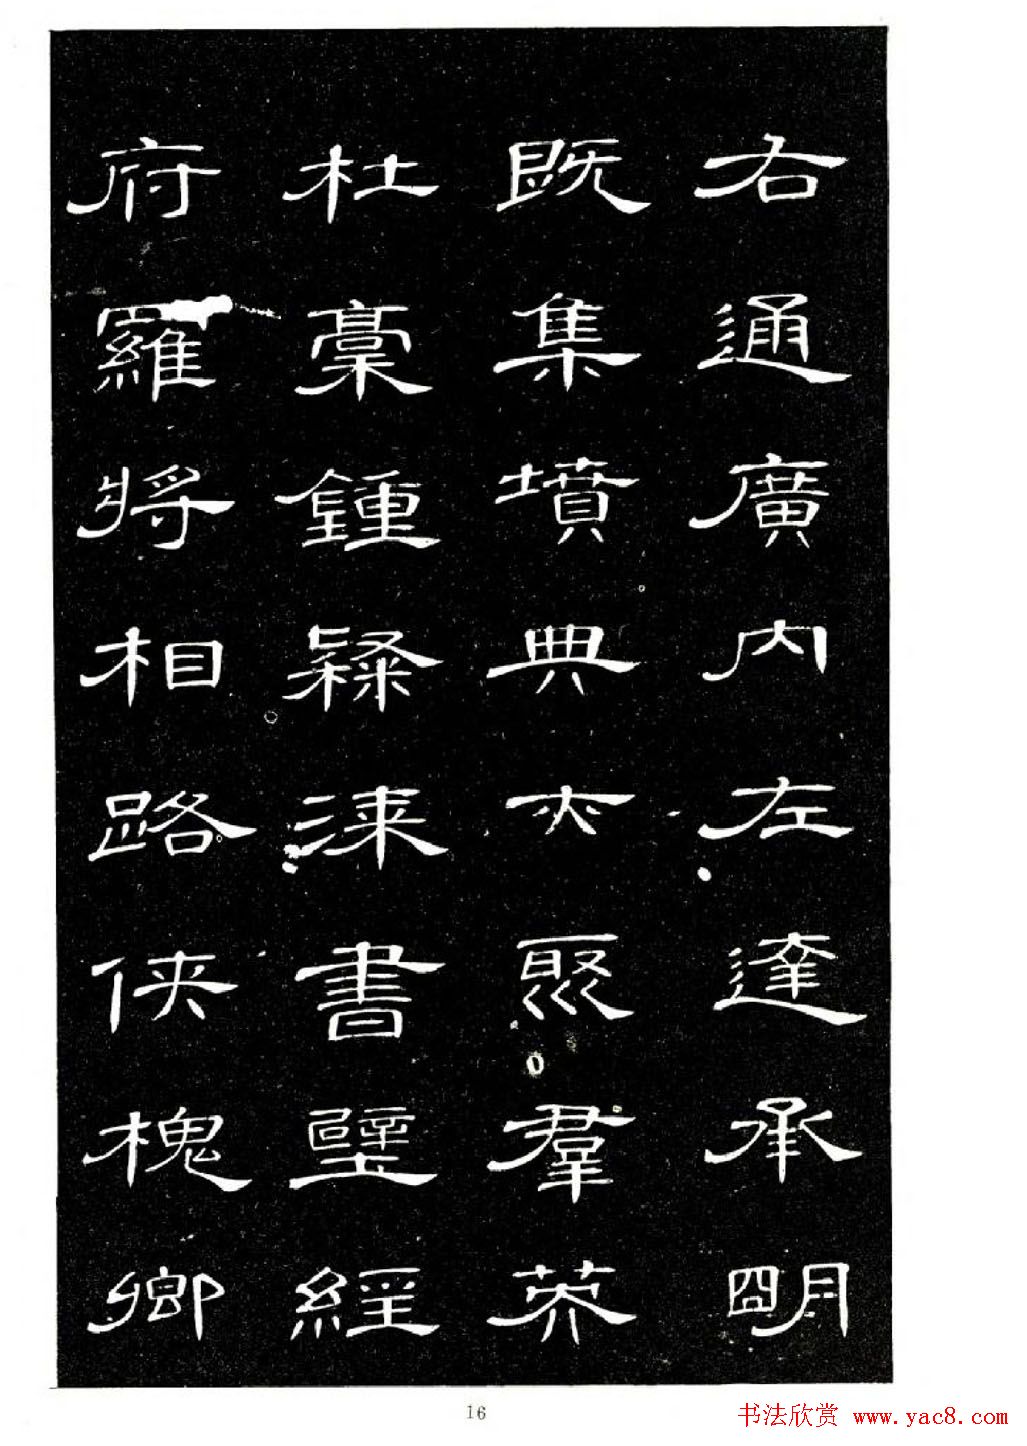 右通廣内左達承明
既集墳典亦聚群英
杜稾鍾隸漆書壁經
府羅將相路俠槐卿
16
书法欣赏 www.yac8.com